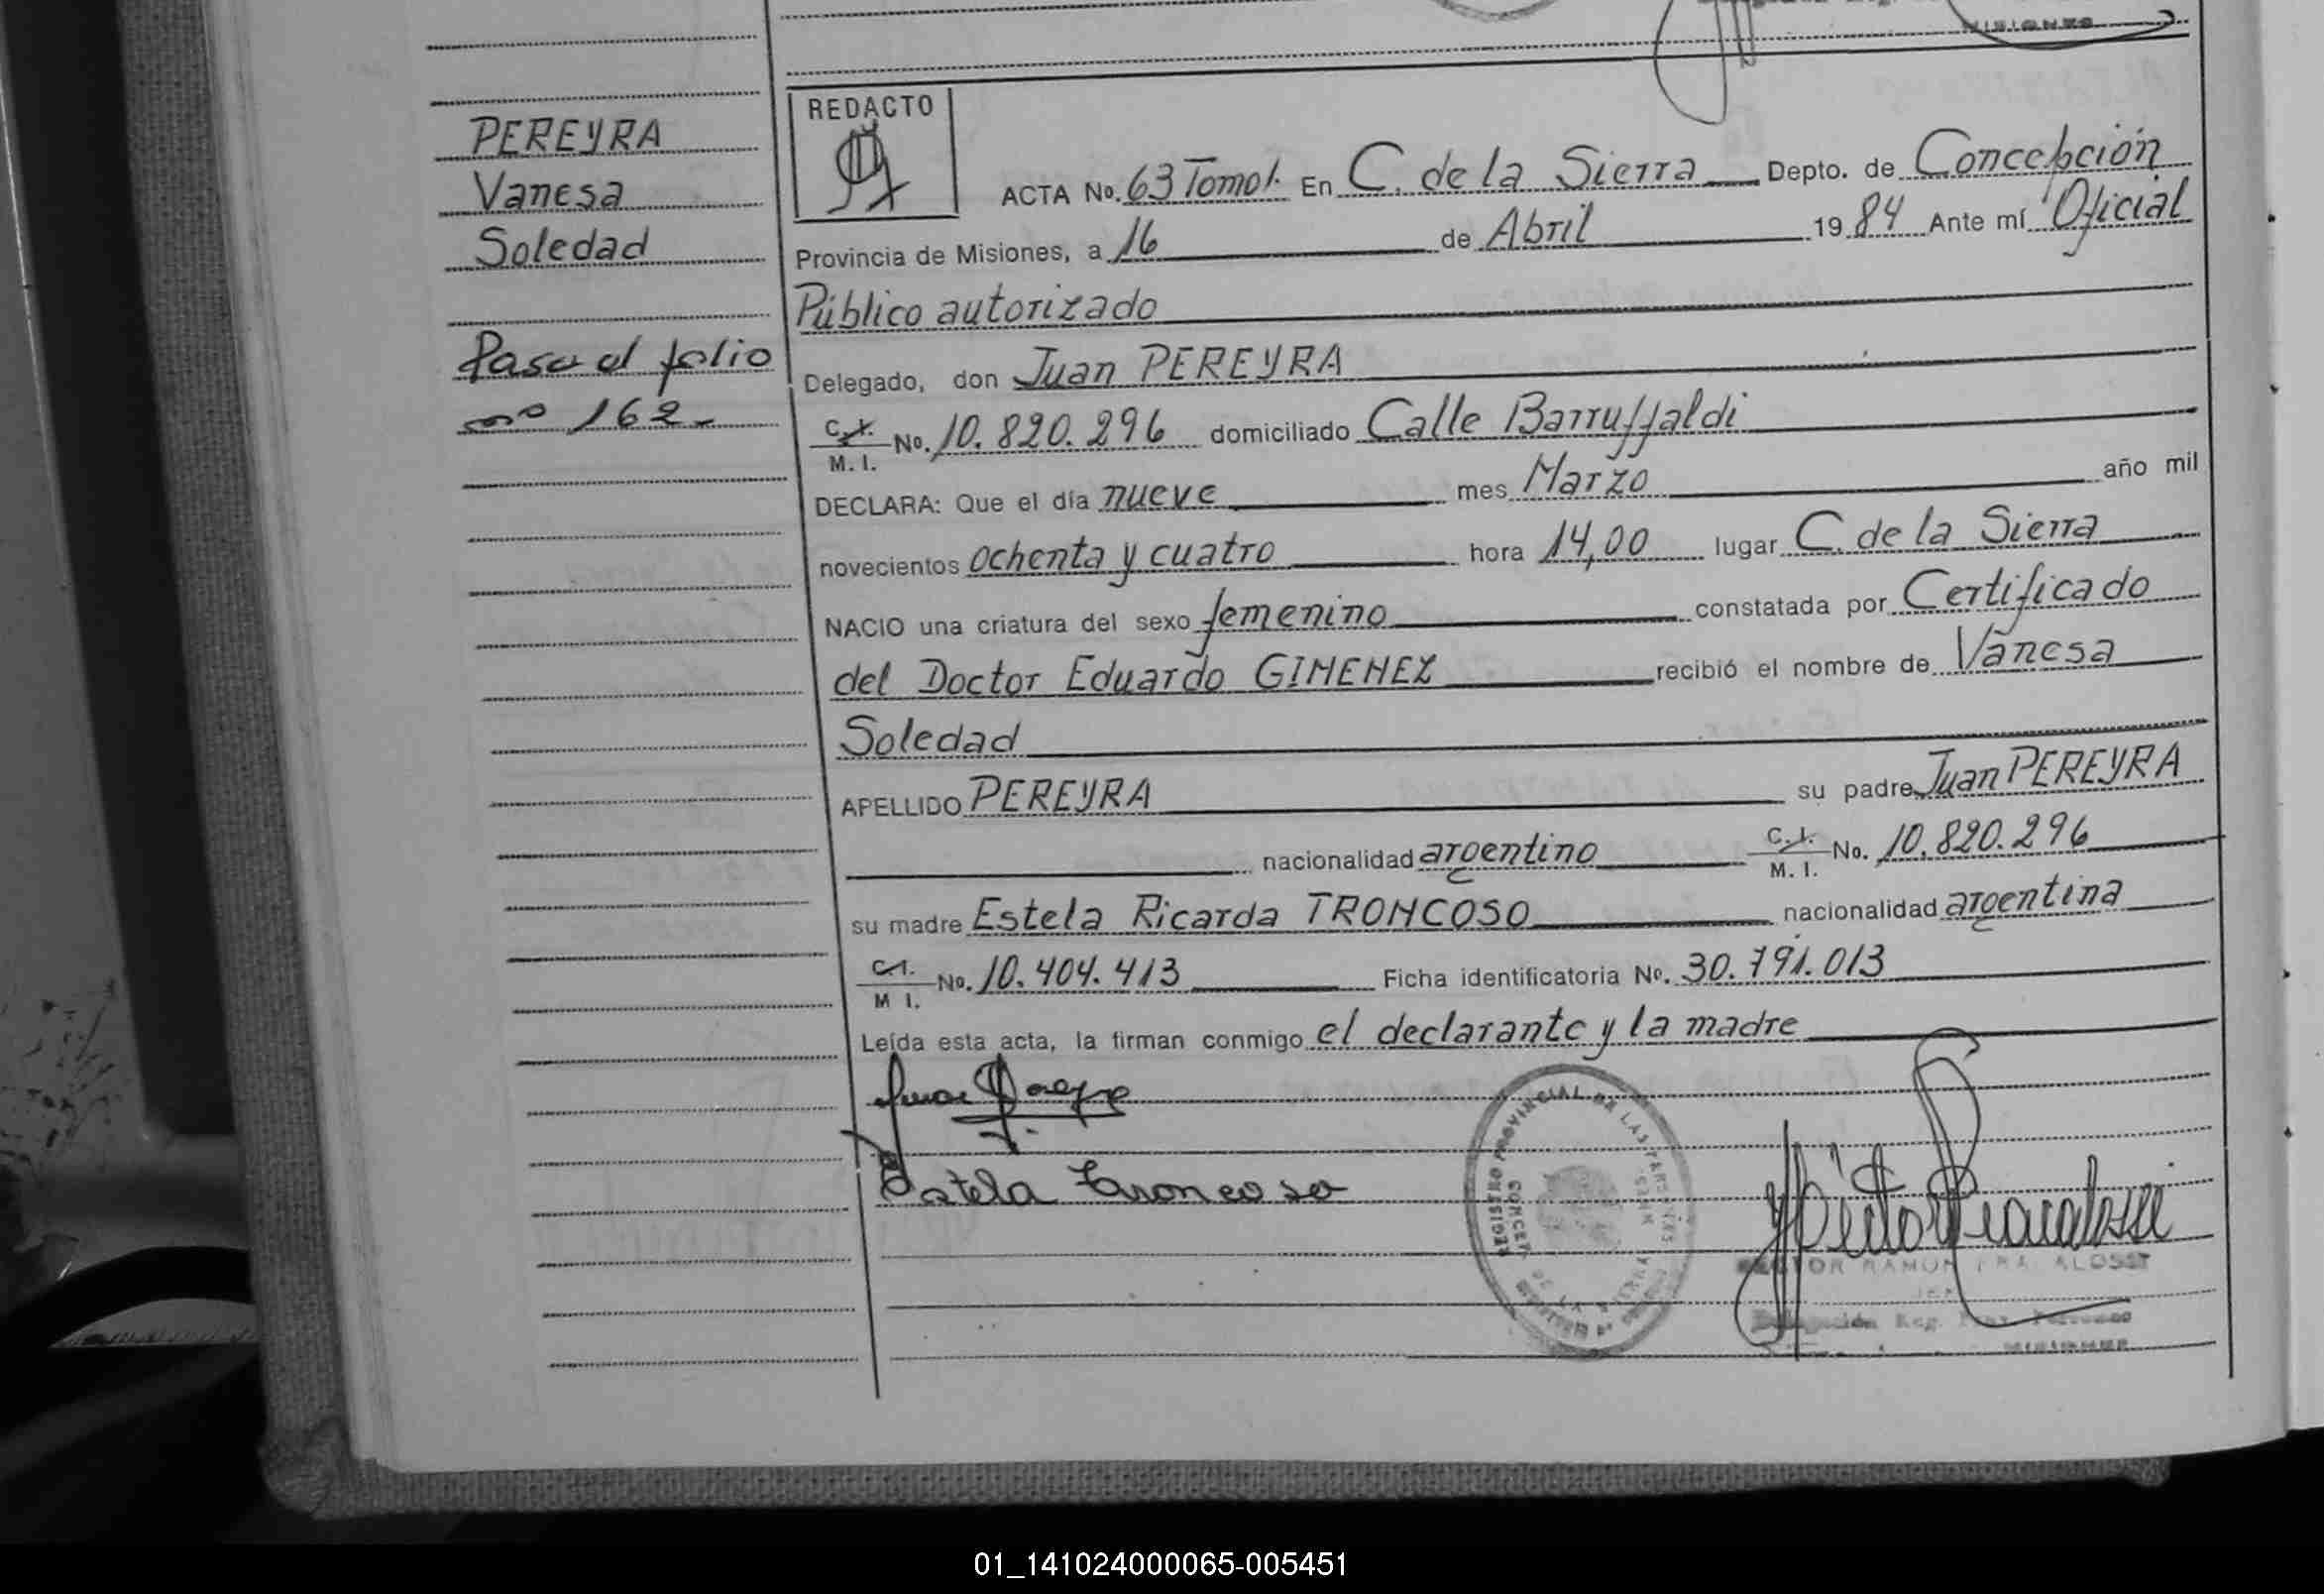 MISIONES
PEREYRA
Vanesa
Soledad
Pasa al folio
nº 162-
REDACTO
ACTA No. 63 Tomo 1. En C. de la Sierra Depto. de Concepción
Provincia de Misiones, a 16 de Abril 1984 Ante mí Oficial
Público autorizado
Delegado, don Juan PEREYRA
C.I. M.I. No. 10.820.296 domiciliado Calle Barruffaldi
DECLARA: Que el día nueve mes Marzo año mil
novecientos ochenta y cuatro hora 14,00 lugar C. de la Sierra
NACIO una criatura del sexo femenino constatada por Certificado
del Doctor Eduardo GIMENEZ recibió el nombre de Vanesa
Soledad
APELLIDO PEREYRA su padre Juan PEREYRA
nacionalidad argentino C.I. M.I. No. 10.820.296
su madre Estela Ricarda TRONCOSO nacionalidad argentina
C.I. M I. No. 10.404.413 Ficha identificatoria No. 30.791.013
Leída esta acta, la firman conmigo el declarante y la madre
Estela Troncoso
REGISTRO PROVINCIAL DE LAS PERSONAS
HECTOR RAMON
Delegación Reg.
MISIONES
01_141024000065-005451